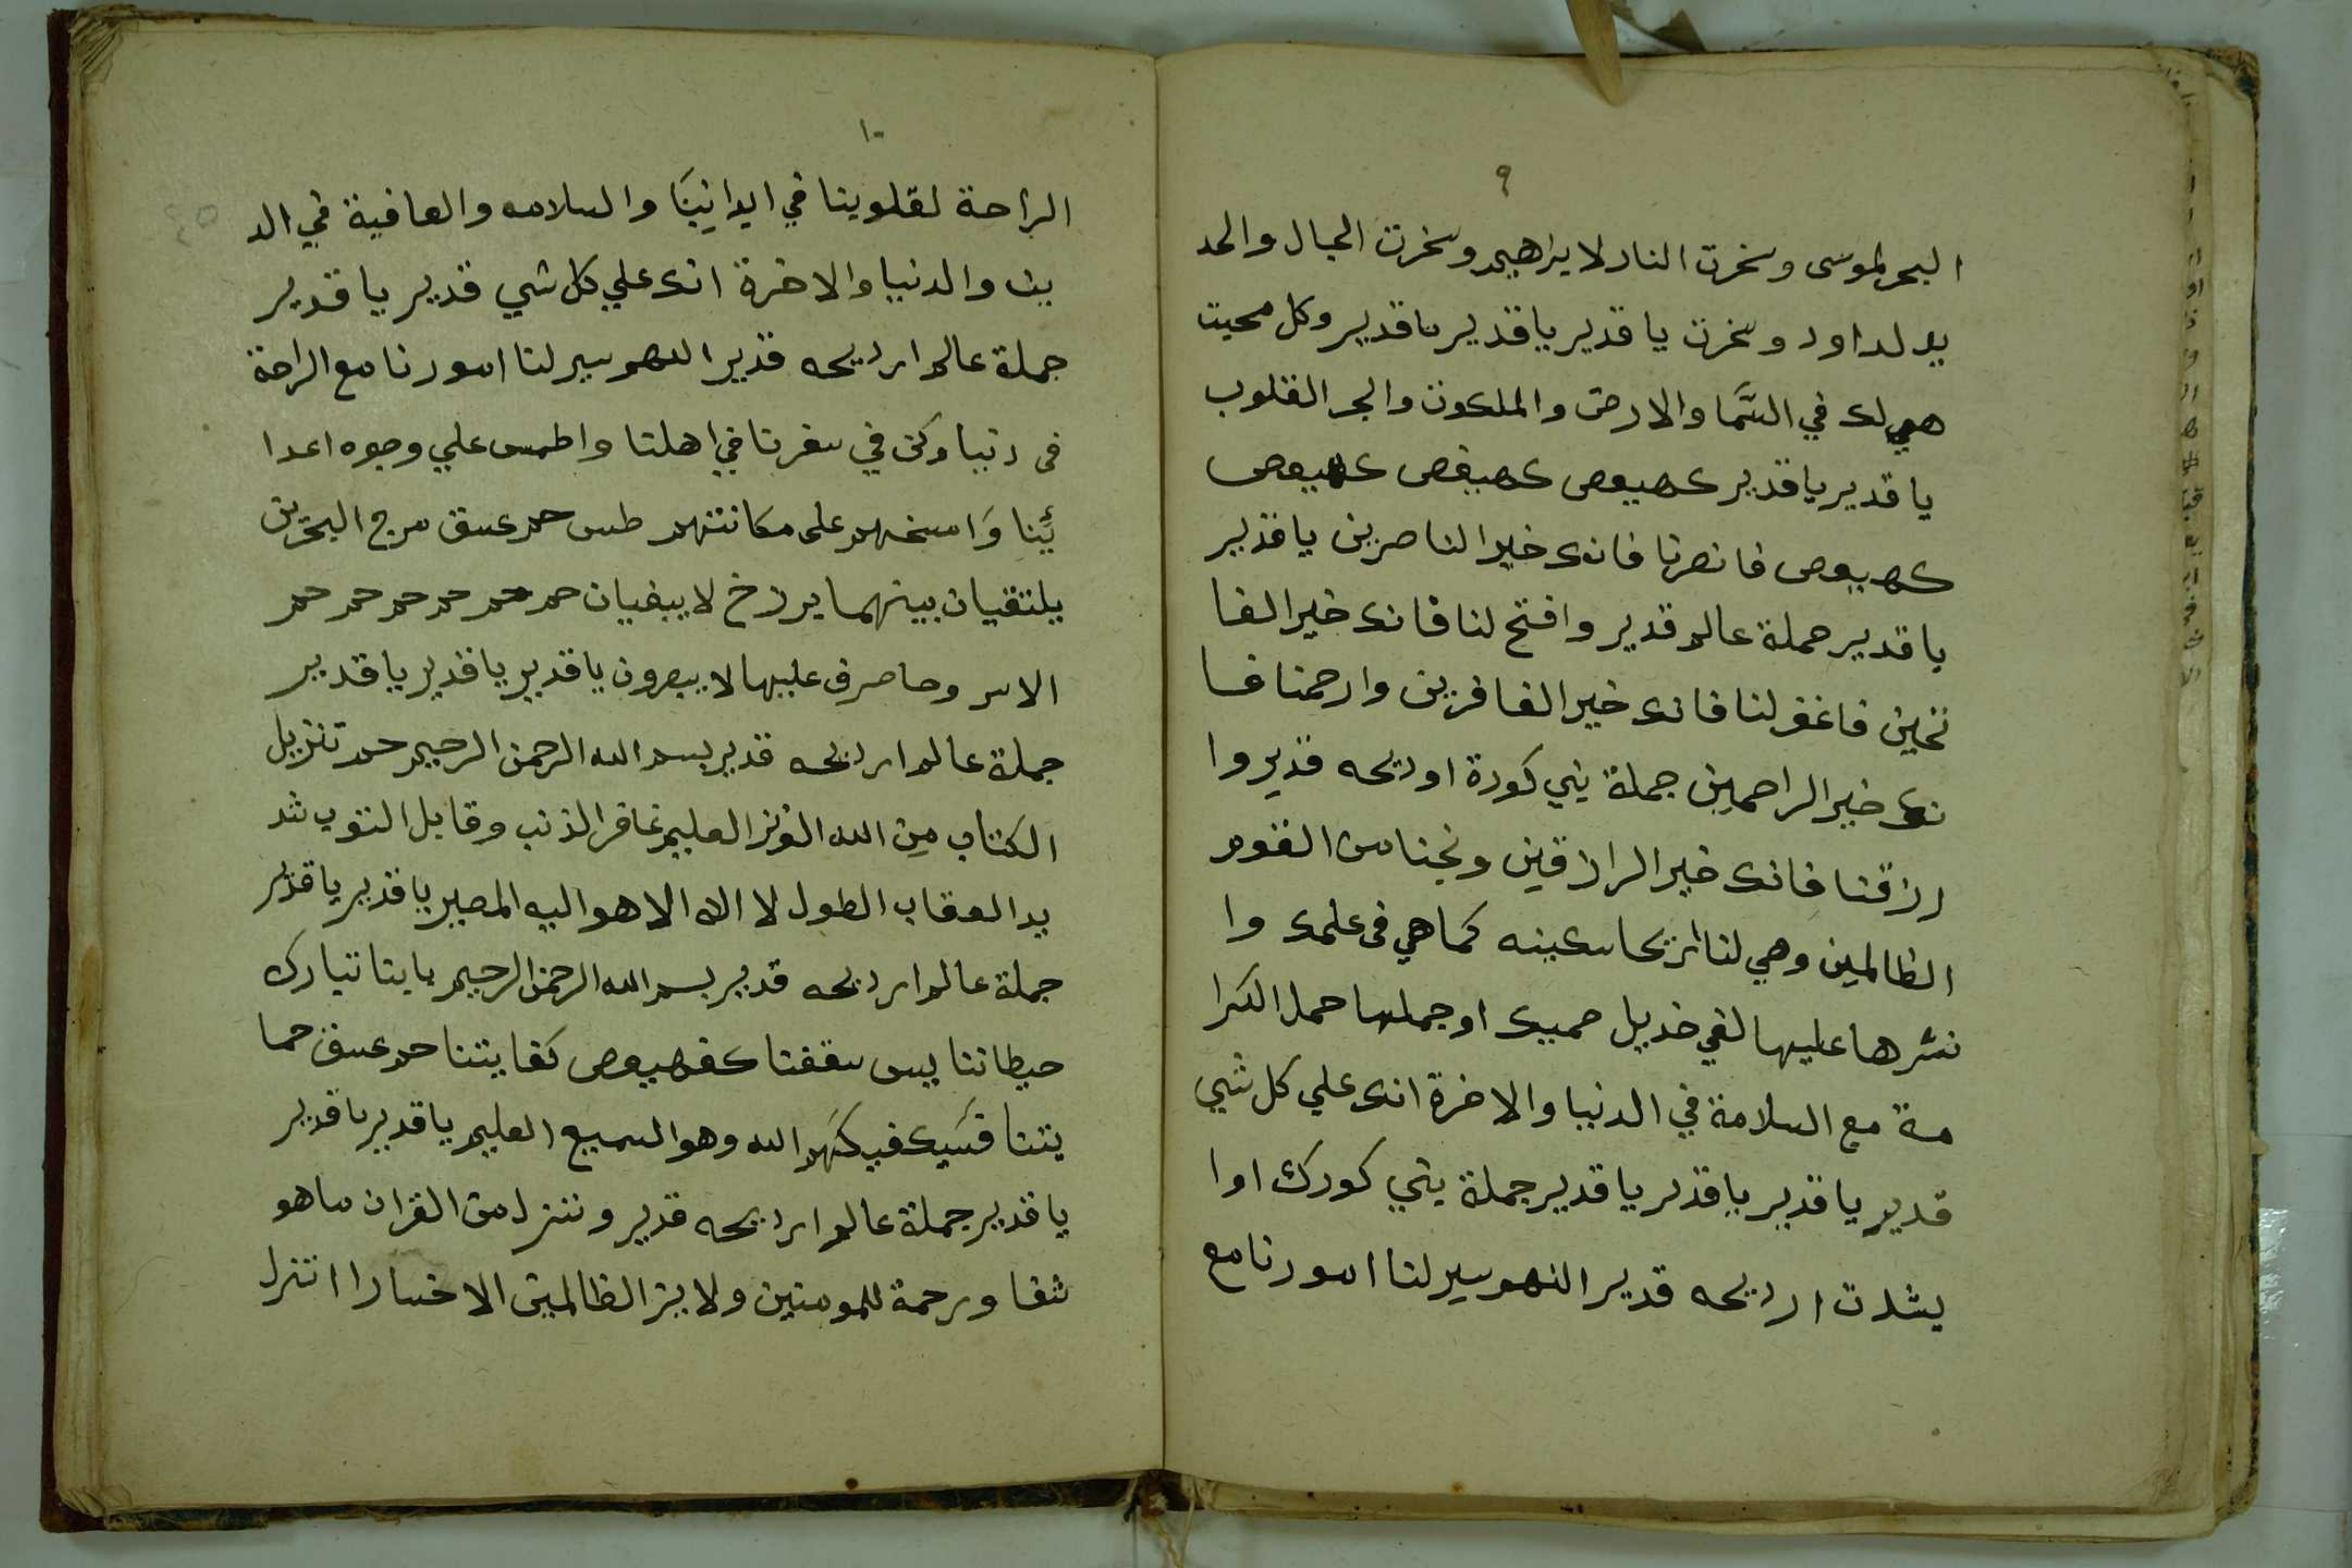 ٩
البحر لموسى وسخرت النار لابراهيم وسخرت الجبال والحد
يد لداود وسخرت يا قدير يا قدير يا قدير وكل محيت
هي لك في السَّما والارض والملكوت والبحر القلوب
يا قدير يا قدير كهيعص كهيعص كهيعص
كهيعص فانصرنا فانك خير الناصرين يا قدير
يا قدير حملة عالم قدير وافتح لنا فانك خير الفا
تحين فاغفر لنا فانك خير الغافرين وارحمنا فا
نك خير الراحمين جملة يني كورة اوريحه قدير وا
رزاقنا فانك خير الرازقين ونجنا من القوم
الظالمين وهي لنا اريحا سكينه كما هي في علمك وا
نشرها عليها لفي خديل حميك او جملها حمل الكرا
مة مع السلامة في الدنيا والاخرة انك علي كل شي
قدير يا قدير يا قدير يا قدير جملة يني كورك اوا
يشلات اريحه قدير اللهم يسر لنا امورنا مع
١٠
الراحة لقلوبنا في ابدانِنَا والسلامه والعافية في الد
ين والدنيا والاخرة انك علي كل شي قدير يا قدير
جملة عالم اريحه قدير اللهم يسر لنا امورنا مع الراحة
فى دنيا وكن في سفرنا في اهلنا واطمس علي وجوه اعدا
ئِنا وَامسخهم على مكانتهم طس حم عسق مرج البحرين
يلتقيان بينهما برزخ لا يبغيان حم حم حم حم حم حم حم
الامر وحا صرف عليها لا يبصرون يا قدير يا قدير يا قدير
جملة عالم اريحه قدير بسم الله الرحمن الرحيم حم تنزيل
الكتاب مِن الله العزيز العليم غافر الذنب وقابل التوب شد
يد العقاب الطول لا اله الا هو اليه المصير يا قدير يا قدير
جملة عالم اريحه قدير بسم الله الرحمن الرحيم بابنا تبارك
حيطاننا يس سقفنا كفهيعص كفايتنا حم عسق حما
يتنا فسَيكفيكَهم الله وهو السميع العليم يا قدير يا قدير
يا قدير جملة عالم اريحه قدير وننزل من القران ما هو
شفا ورحمة للمومنين ولا يز الظالمين الا خسارا انتزل